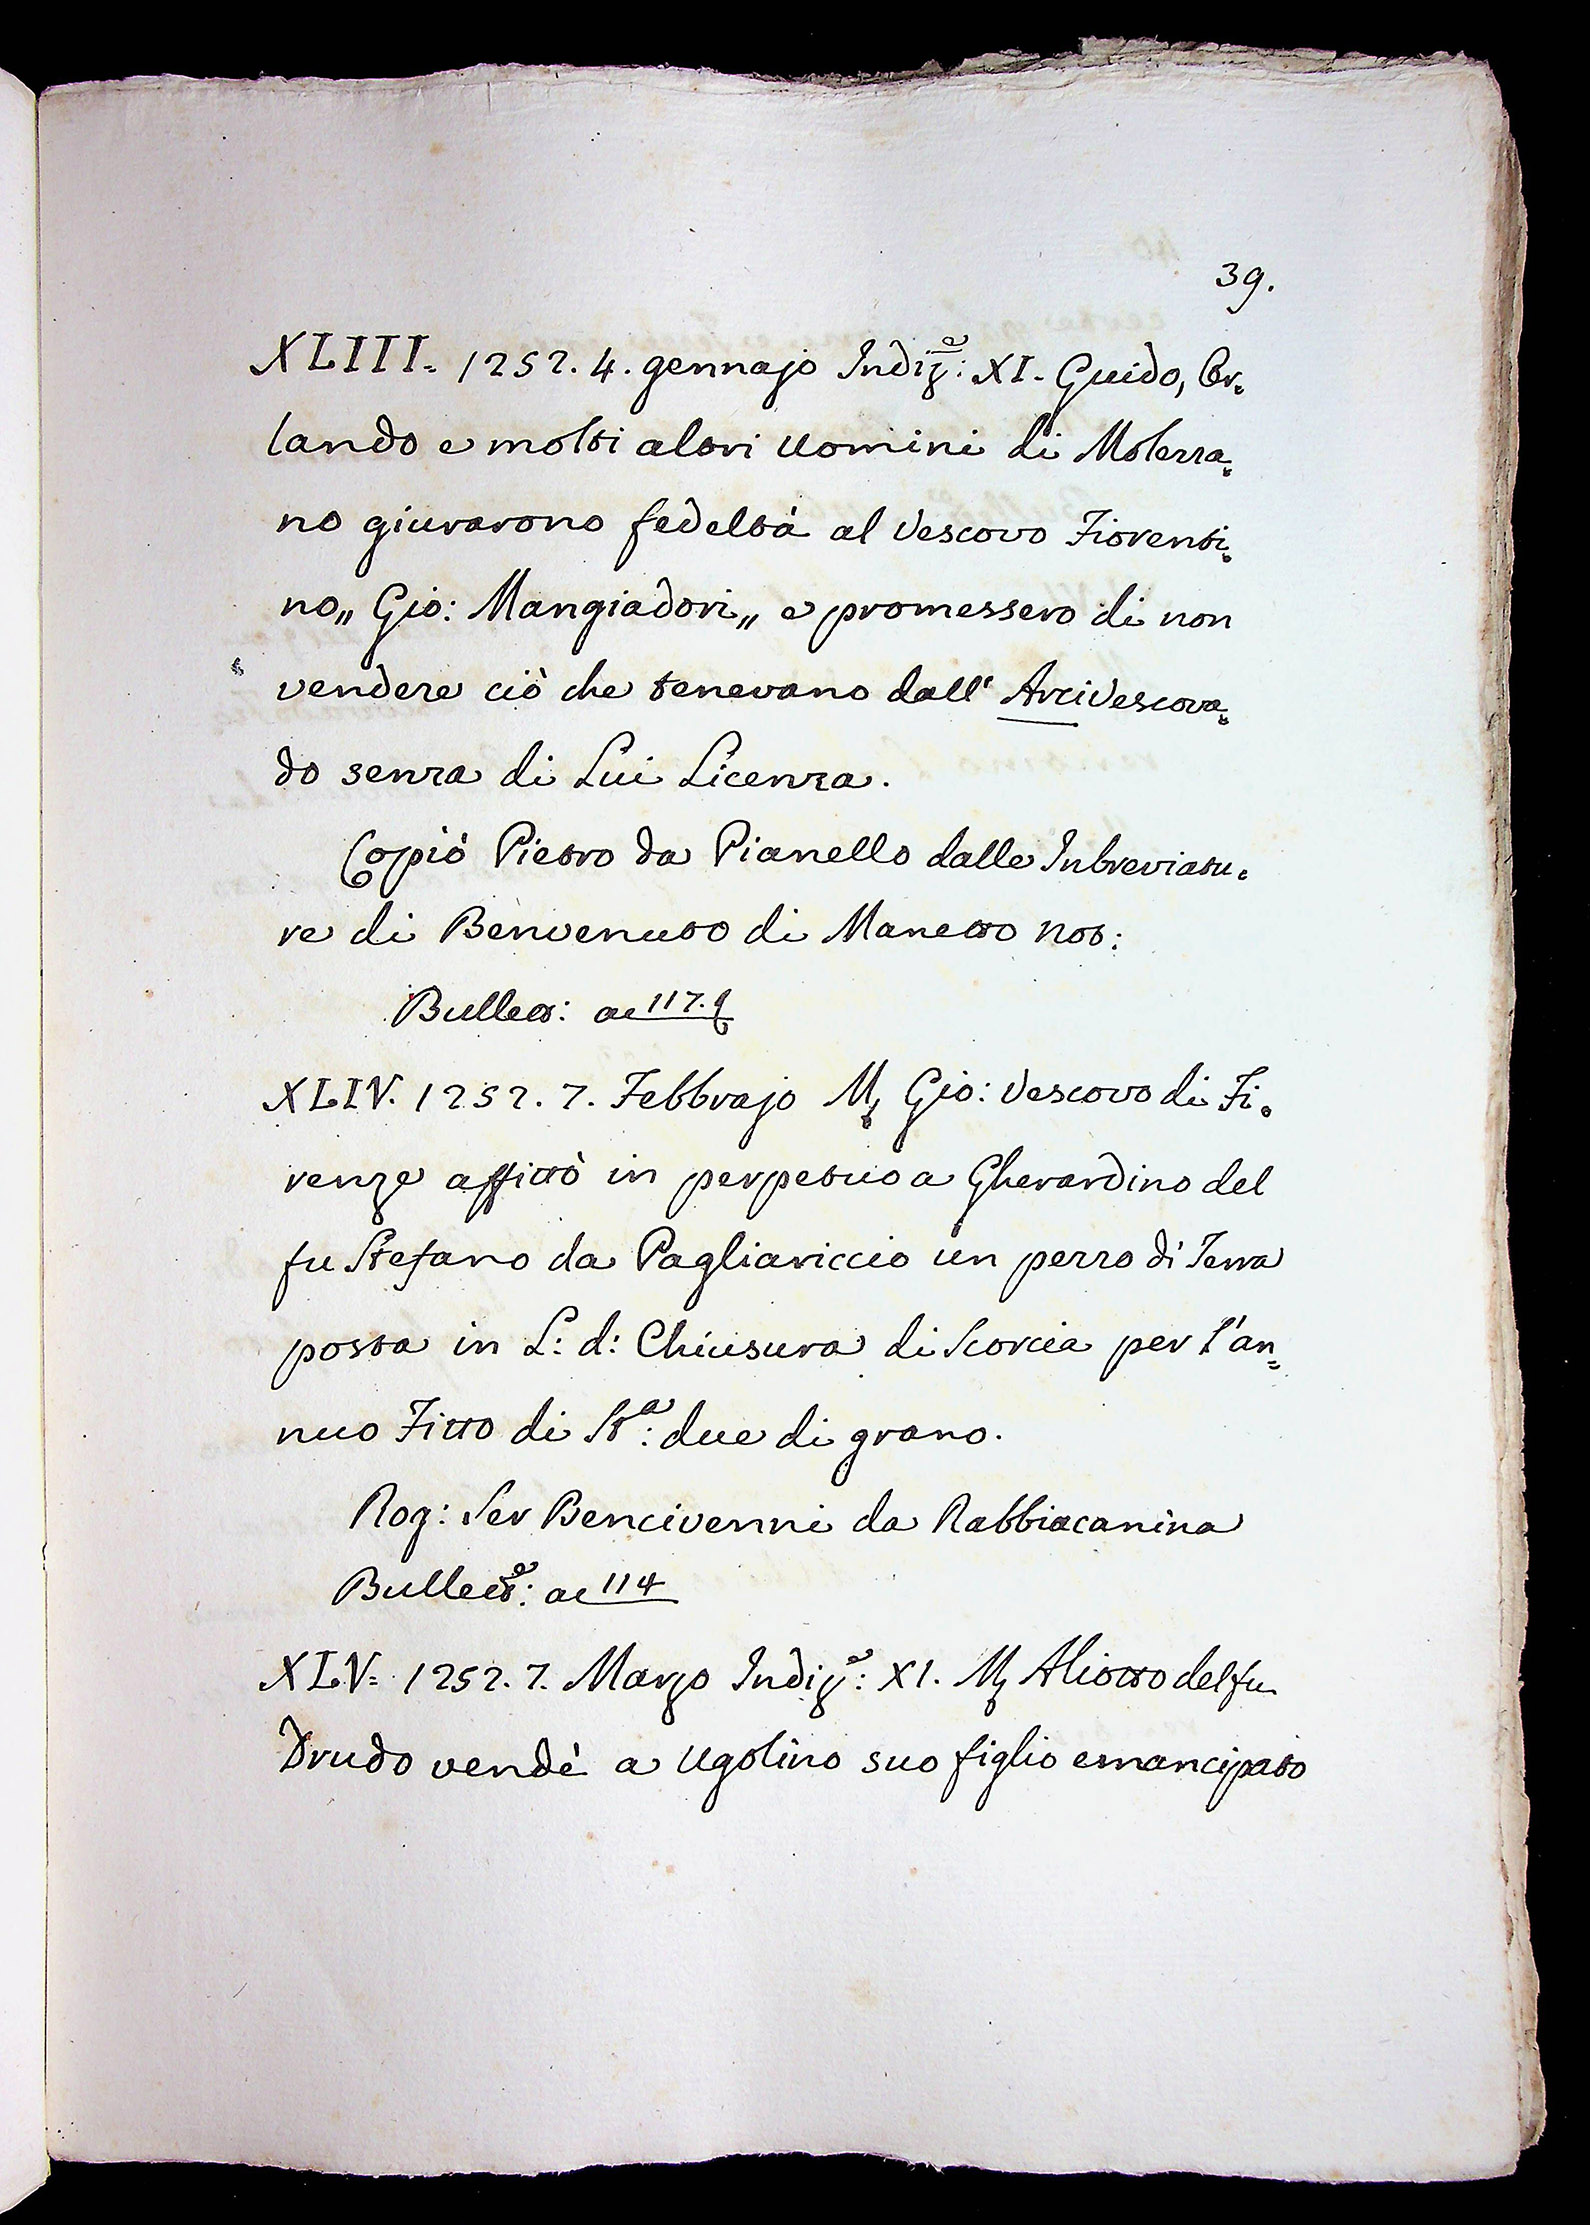 39.
XLIII. 1252. 4. gennajo Indiz.e: XI. Guido, Or-
lando e molti altri Uomini di Molezza-
no giurarono fedeltà al Vescovo Fiorenti-
no,, Gio: Mangiadori,, e promessero di non
vendere ciò che tenevano dall' ArciVescova-
do senza di Lui Licenza.
Copiò Pietro da Pianello dalle Inbreviatu-
re di Benvenuto di Manetto Not:
Bullett: ac 117.
XLIV. 1252. 7. Febbrajo M. Gio: Vescovo di Fi-
renze affittò in perpetuo a Gherardino del
fu Stefano da Pagliariccio un pezzo di Terra
posta in L: d: Chiusura di Scorcia per l'an=
nuo Fitto di St.a: due di grano.
Rog: Ser Bencivenni da Rabbiacanina
Bullett.e: ac 114
XLV= 1252. 7. Marzo Indiz.e: XI. M. Aliotto del fu
Drudo vendè a Ugolino suo figlio emancipato